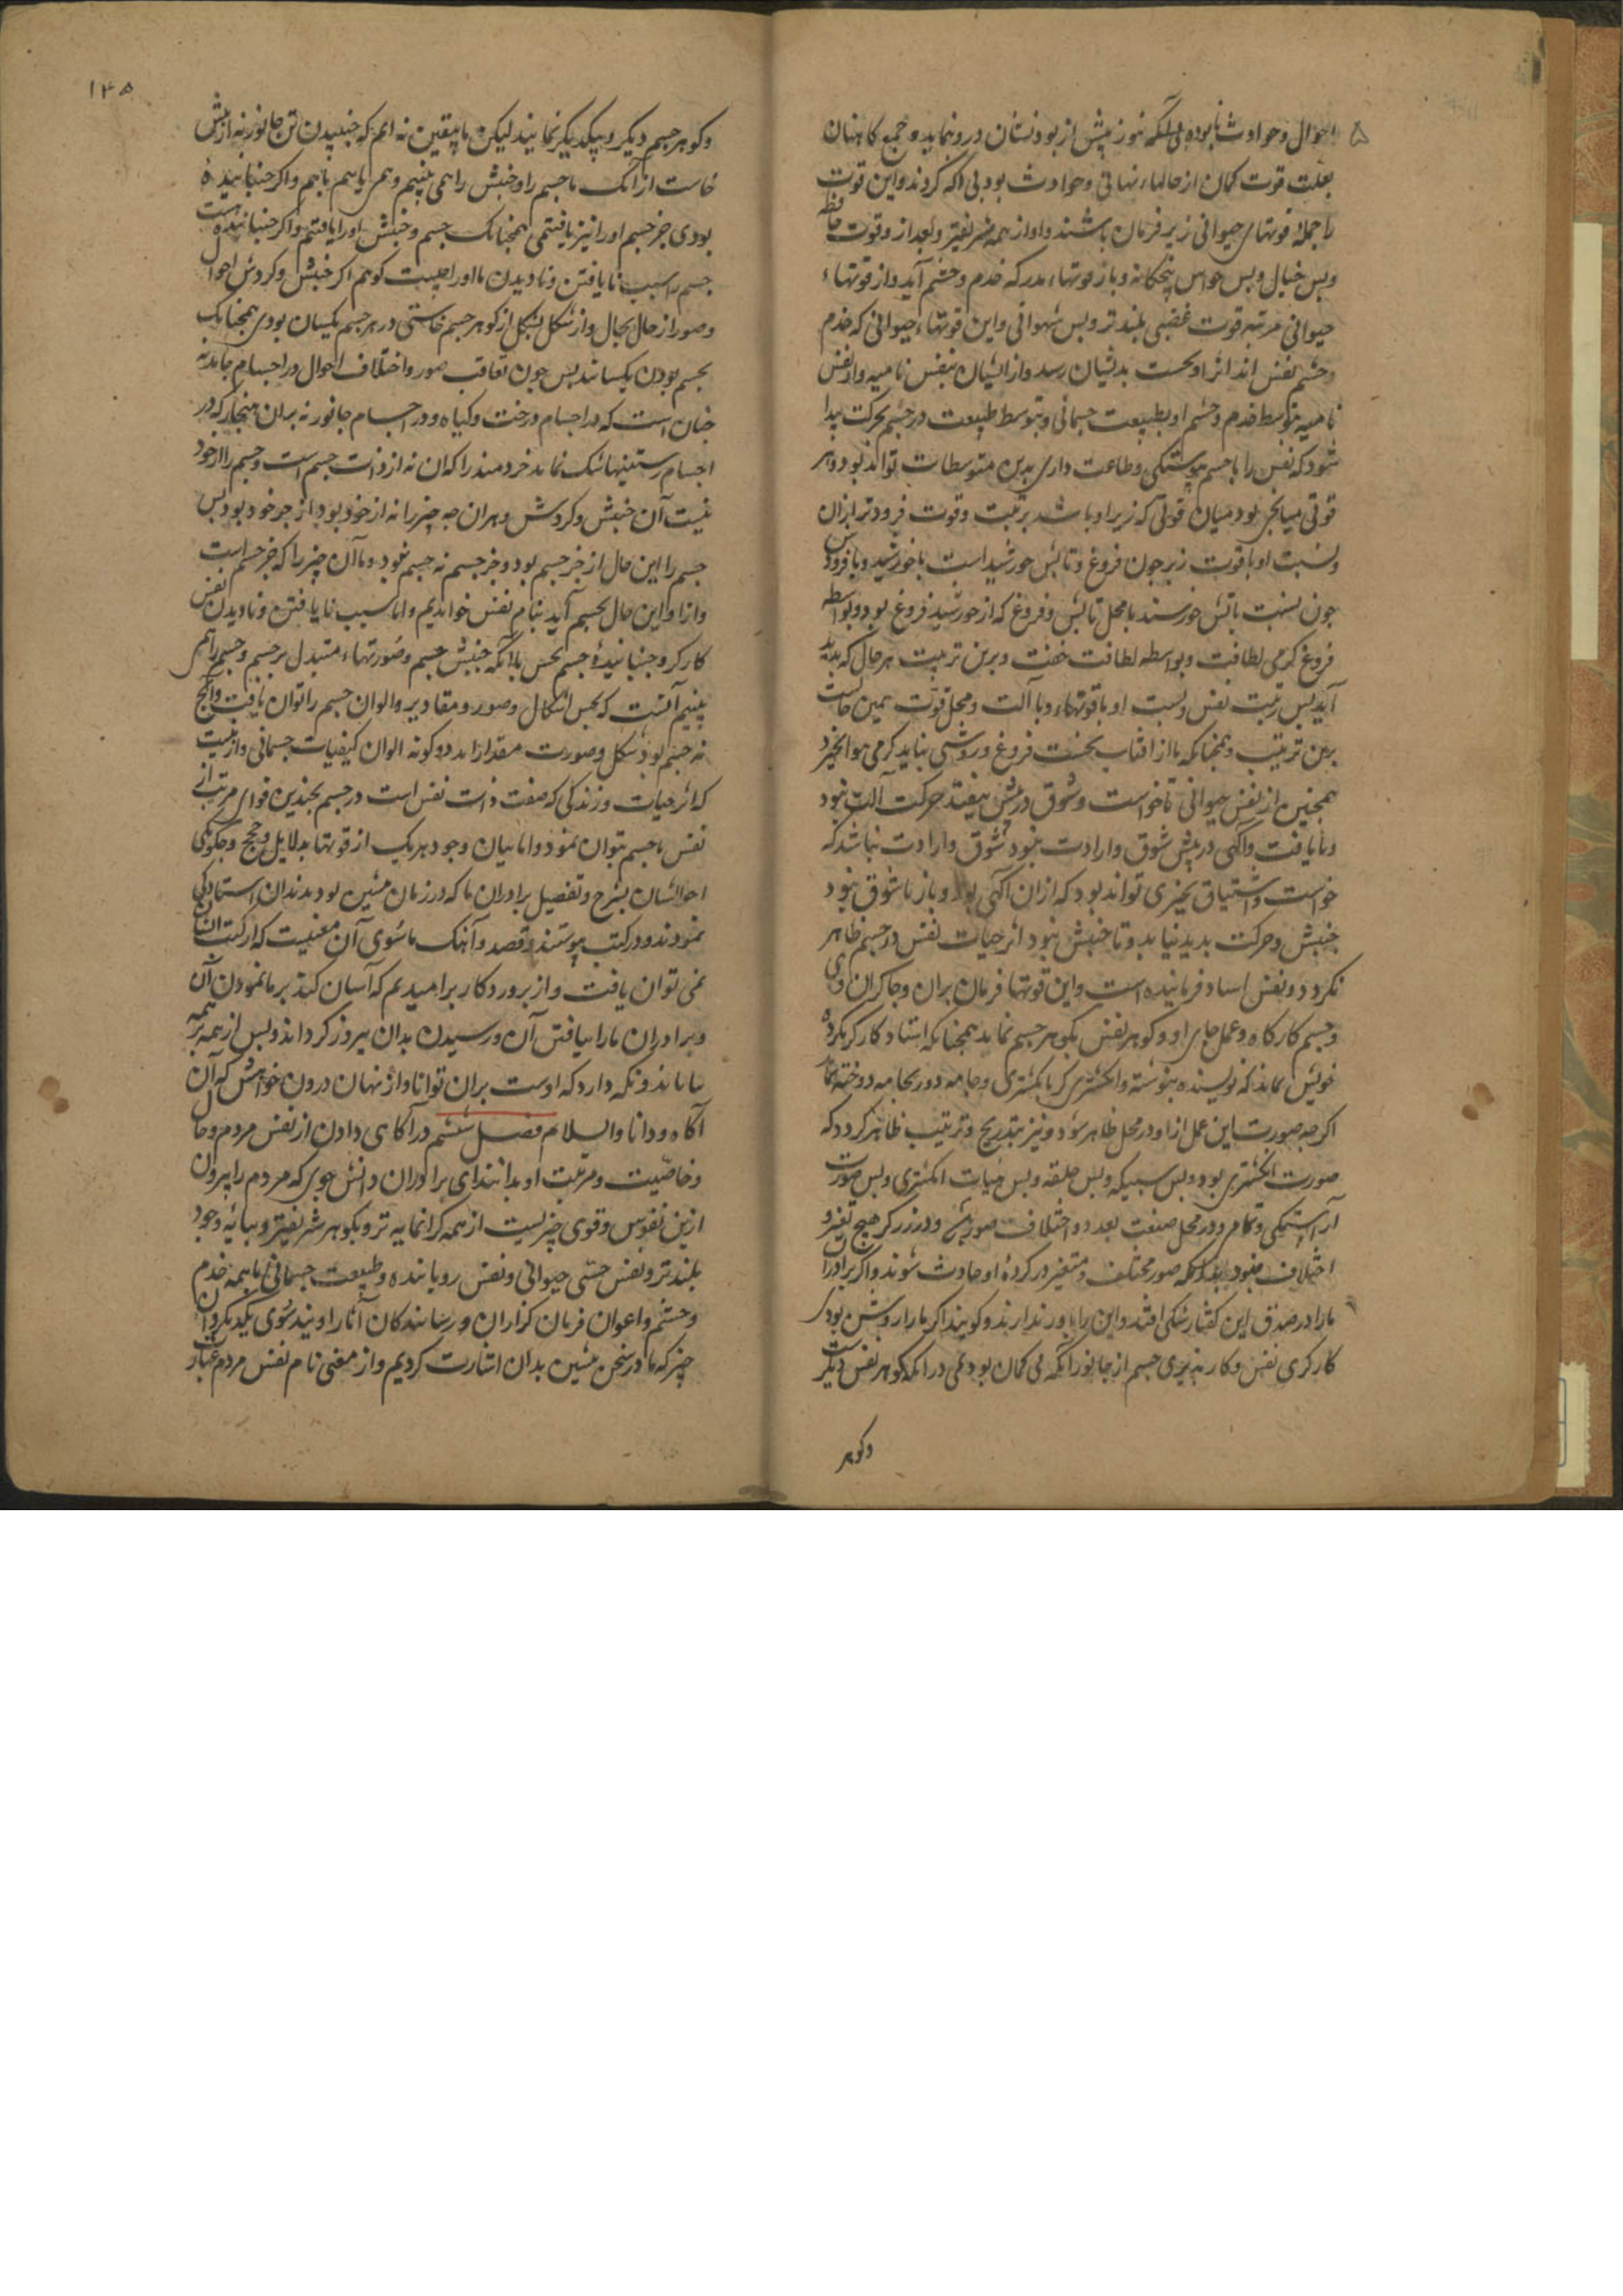 احوال و حوادث نابوده بی آنکه هنوز پیش از بودنشان درو نماید و جمع کاهنان
بعلت قوت کمان از حالهاء نهانی و حوادث بودنی اکه کردند و این قوت
را جملهٔ قوتهای حیوانی زیر فرمان باشند و او از همه شریفتر و بعد از و قوت حافظه
و پس خیال و پس حواس پنجکانه و باز قوتهاء مدرکه خدم و حشم آید و از قوتهاء
حیوانی مرتبه قوت غضبی بلندتر و پس شهوانی و این قوتهاء حیوانی که خدم
و حشم نفس اند اثر او نخست بدیشان رسد و از ایشان بنفس نامیه و از نفس
نامیه بتوسط خدم و حشم او بطبیعت جسمانی و بتوسط طبیعت در جسم حرکت پیدا
شود که نفس را با جسم پیوستکی و طاعت داری بدین متوسطات تواند بود و هر
قوتی میانجی بود میان قوتی که زیر او باشد برتبت و قوت فرودتر ازان
و نسبت او با قوت زبر چون فروغ و تابش خورشید است با خورشید و با فرودین
چون نسبت تابش خورشید با محل تابش و فروغ که از خورشید فروغ بود و بواسطه
فروغ کرمی لطافت و بواسطه لطافت خفت و برین ترتیب هر حال که پدید
آید پس رتبت نفس و نسبت او با قوتهاء و با آلت و محل قوت همین حالست
برین ترتیب و همچنانکه ما از افتاب نخست فروغ و روشنی نیاید کرمی هوا نخیزد
همچنین از نفس حیوانی تا خواست و شوق در پیش نیفتد حرکت آلت نبود
و تا یافت و آکهی در پیش شوق و ارادت نبود شوق و ارادت نباشد که
خواست و اشتیاق بچیزی تواند بود که ازان آکهی بود و باز تا شوق نبود
جنبش و حرکت پدید نیاید و تا جنبش نبود اثر حیات نفس در جسم ظاهر
نکردد و نفس استاد فرماینده است و این قوتها فرمان بران و چاکران وی
و جسم کارکاه و عمل جای او و کوهر نفس بکوهر جسم نماید همچنانکه استاد کارکر بکرده
خویش نماند که نویسنده بنوشته و انکشتری کر بانکشتری و جامه دوز بجامه دوخته نماند
اکرچه صورت این عمل از او در محل ظاهر شود و نیز بتدریج و ترتیب ظاهر کردد که
صورت انکشتری بود و پس سبیکه و پس حلقه و پس هیات انکشتری و پس صورت
آراستکی و تمام و در محل صنعت بعدد و اختلاف صور پیش و در زرکر هیچ تغیر و
اختلاف نبود بلکه صور مختلف و متغیر در کردهٔ او حادث شوند و اکر برادران
مارا در صدق این کفتار شکی افتد و این را باور ندارند و کویند اکر مارا روشن بودی
کارکری نفس و کار پذیری جسم از جانور آنکه بی کمان بودیمی در آنکه کوهر نفس دیکر است
وکوهر
۱۴۵
و کوهر جسم دیکر و بیکدیکر نمانند لیکن ما بیقین نه ایم که جنبیدن تن جانور نه از پیش
خاست ازانک ما جسم را و جنبش را همی بینیم و هم یابیم باهم و اکر جنبانندهٔ
بودی جز جسم اورا نیز یافتمی همچنانک جسم و جنبش اورا یافتیم و اکر جنباننده است
جسم را سبب نایافتن و نادیدن ما اورا چیست کوهم اکر جنبش و کردش احوال
و صور از حال بحال و از شکل بشکل از کوهر جسم خاستی در هر جسم یکسان بودی همچنانک
بجسم بودن یکسانند پس چون تعاقب صور و اختلاف احوال در اجسام جماد نه
چنان است که در اجسام درخت و کیاه و در اجسام جانور نه بران هنجار که در
اجسام رستنیها شک نماند خردمند را که ان نه از ذات جسم است و جسم را از خود
نیست آن جنبش و کردش و هران چه چیز را نه از خود بود از جز خود بود پس
جسم را این حال از جز جسم بود و جز جسم نه جسم بود و ما آن چیز را که جز جسم است
و ازو این حال بجسم آید بنام نفس خواندیم و اما سبب نایافتن و نادیدن نفس
کارکر و جنبانندهٔ جسم بحس با آنکه جنبش جسم و صورتهاء متبدل بر جسم و جسم را هم
بینیم آنست که بحس اشکال و صور و مقادیر و الوان جسم را توان یافت و آنچ
نه جسم بود شکل و صورت مقدار اندر و کونه الوان کیفیات جسمانی و از نیست
که اثر حیات و زندکی که صفت ذات نفس است در جسم بچندین قوای مرتب از
نفس با جسم بتوان نمود و اما بیان وجود هر یک از قوتها بدلایل و حجج و چکونکی
احوالشان بشرح و تفصیل برادران ما که در زمان پیشین بودند دران استادکی
نمودند و در کتب پیوستند و قصد و آهنک ما سوی آن معنیست که از کتب ایشان
نمی توان یافت و از پروردکار بر امیدیم که آسان کند بر ما نمودن آن
و برادران مارا بیافتن آن و رسیدن بدان پیروز کرداند و پس از همه بر همه
بماناند و نکه دارد که اوست بران توانا و از نهان درون خواهش که آن
آکاه و دانا والسلام فصل ششم در آکاهی دادن از نفس مردم و حال
و خاصیت و مرتبت او بدانند ای برادران دانش جوی که مردم را بیرون
ازین نفوس و قوی چیزیست از همه کرانمایه تر و بکوهر شریفتر و بپایهٔ وجود
بلندتر و نفس حسی حیوانی و نفس رویاننده و طبیعت جسمانی با همه خدم
و حشم و اعوان فرمان کزاران و رسانندکان آثار اویند سوی یکدیکر و ان
چیز که ما در سخن پیشین بدان اشارت کردیم و از معنی نام نفس مردم عبارت